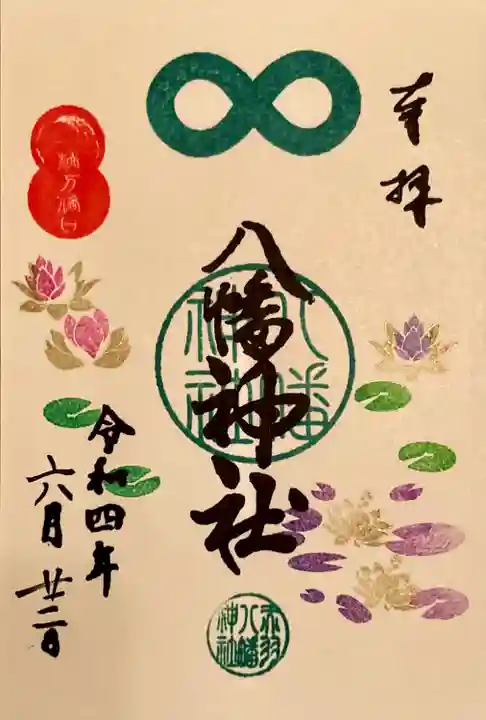 奉拝
八幡神社
八幡神社
赤羽八幡神社
一粒万倍日
令和四年
六月廿二日